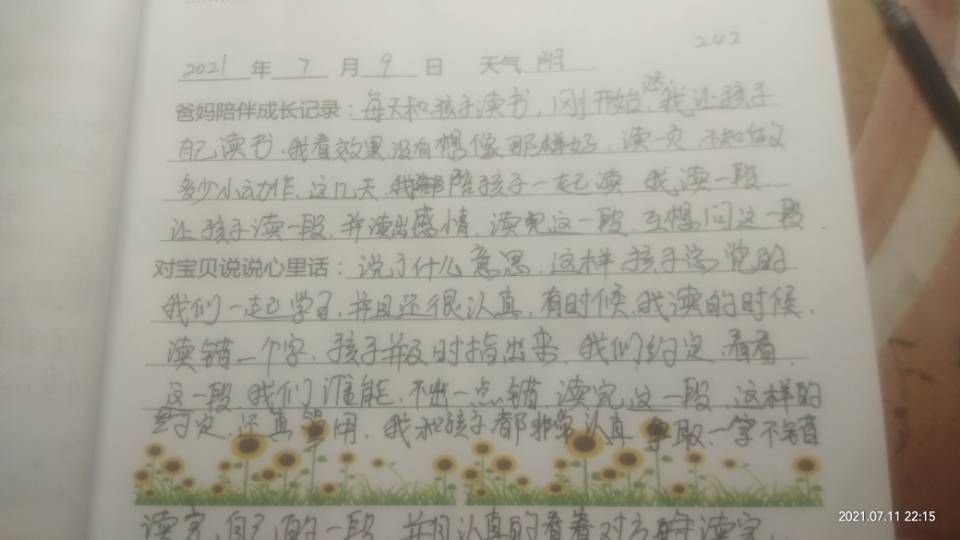 242
2021 年 7 月 9 日 天气 阴
爸妈陪伴成长记录：每天和孩子读书，刚开始，我让孩子
自己读书，我看效果没有想像那样好，读一页，不知做
多少小动作，这几天，我都陪孩子一起读，我读一段
让孩子读一段，并读出感情，读完这一段，互相问这一段
对宝贝说说心里话：说了什么意思，这样孩子觉的
我们一起学习，并且还很认真，有时候，我读的时候，
读错一个字，孩子并及时指出来，我们约定，看看
这一段，我们谁能，不出一点错，读完这一段，这样的
约定，还真管用，我和孩子都非常认真，争取，一字不错
读完，自己的一段，并且认真的看着对方读完，
2021.07.11 22:15